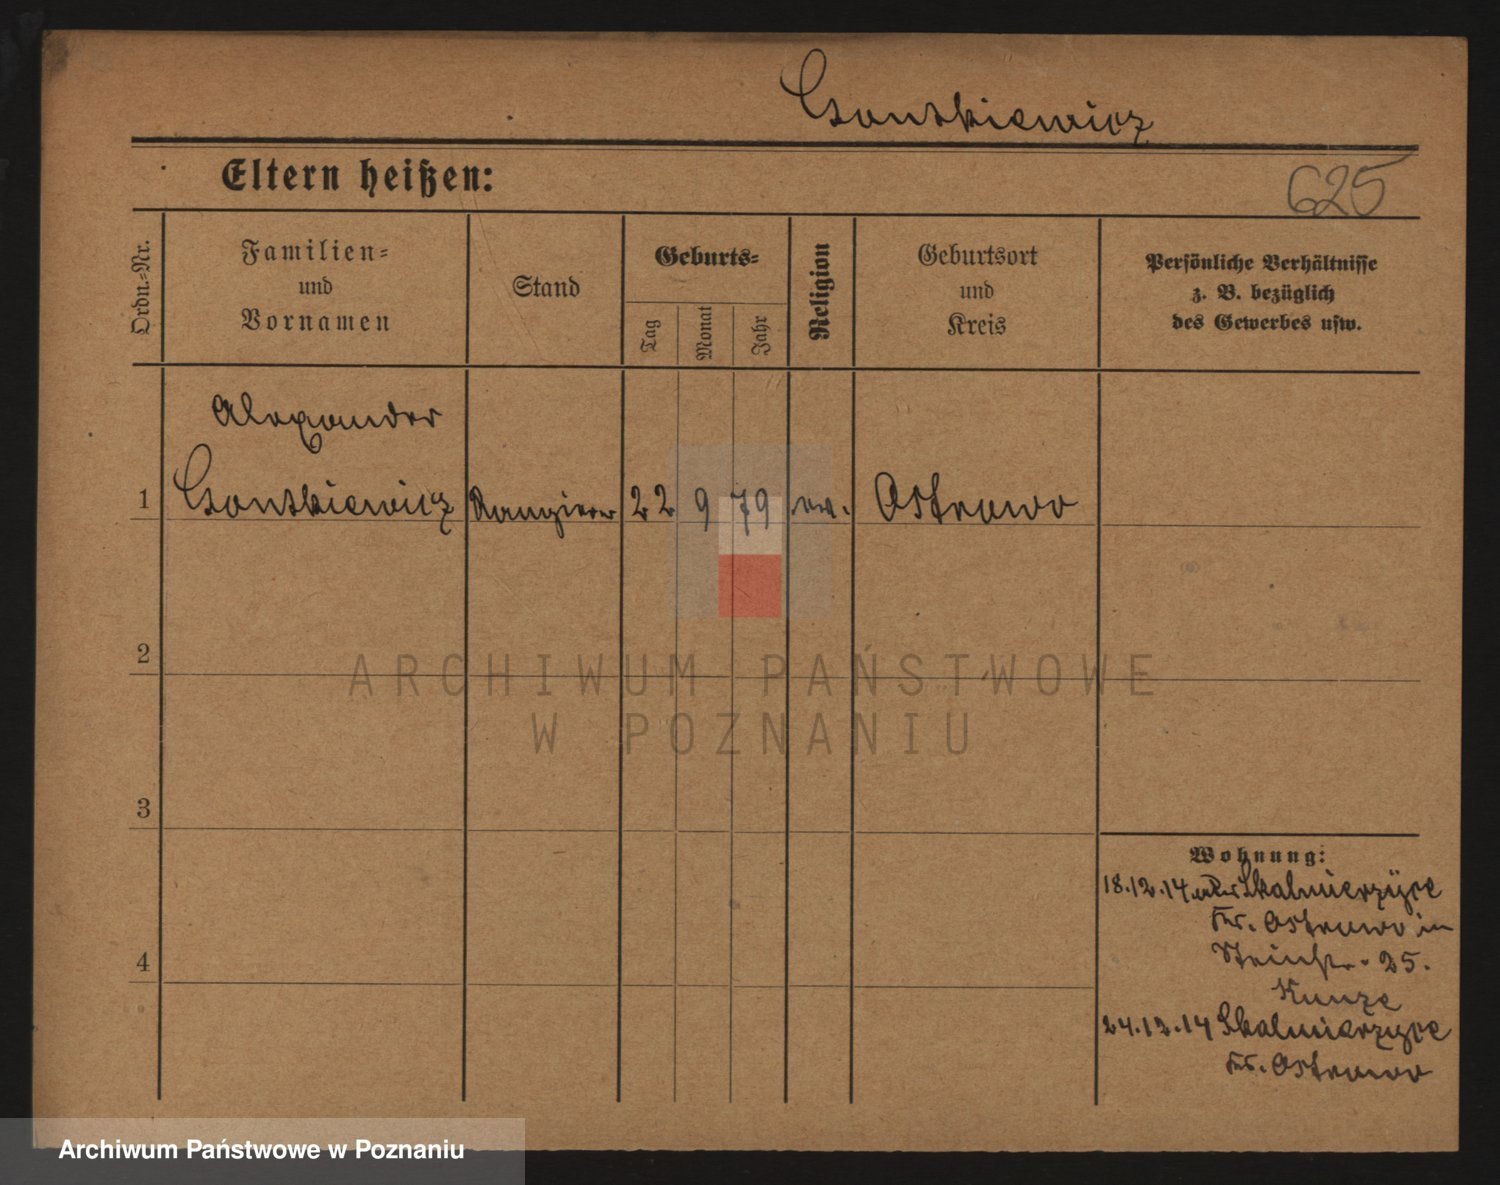 Gonskiewicz
Eltern heißen:
625
Ordn.-Nr.
Familien-
und
Vornamen
Stand
Geburts-
Tag
Monat
Jahr
Religion
Geburtsort
und
Kreis
Persönliche Verhältnisse
z. B. bezüglich
des Gewerbes usw.
Alexander
1 Rangierer 22 9 79 Ostrowo
2
3
4
Wohnung:
18.12.14 Skalmierzyce
Kr. Ostrowo in
Steinstr. 25.
Kunze
24.12.14 Skalmierzyce
Kr. Ostrowo
ARCHIWUM PAŃSTWOWE
W POZNANIU
Archiwum Państwowe w Poznaniu